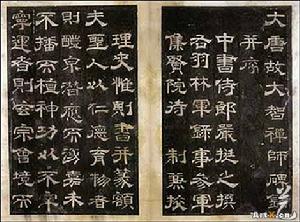 大唐故大智禪師碑銘
并序
中書侍郎嚴挺之撰
右羽林軍錄事參軍
集賢院待制兼校
理史惟則書并篆額
夫聖人以仁德育物者
則醴泉潛應嘉禾
不播而植神功以不
運者則會宗會境